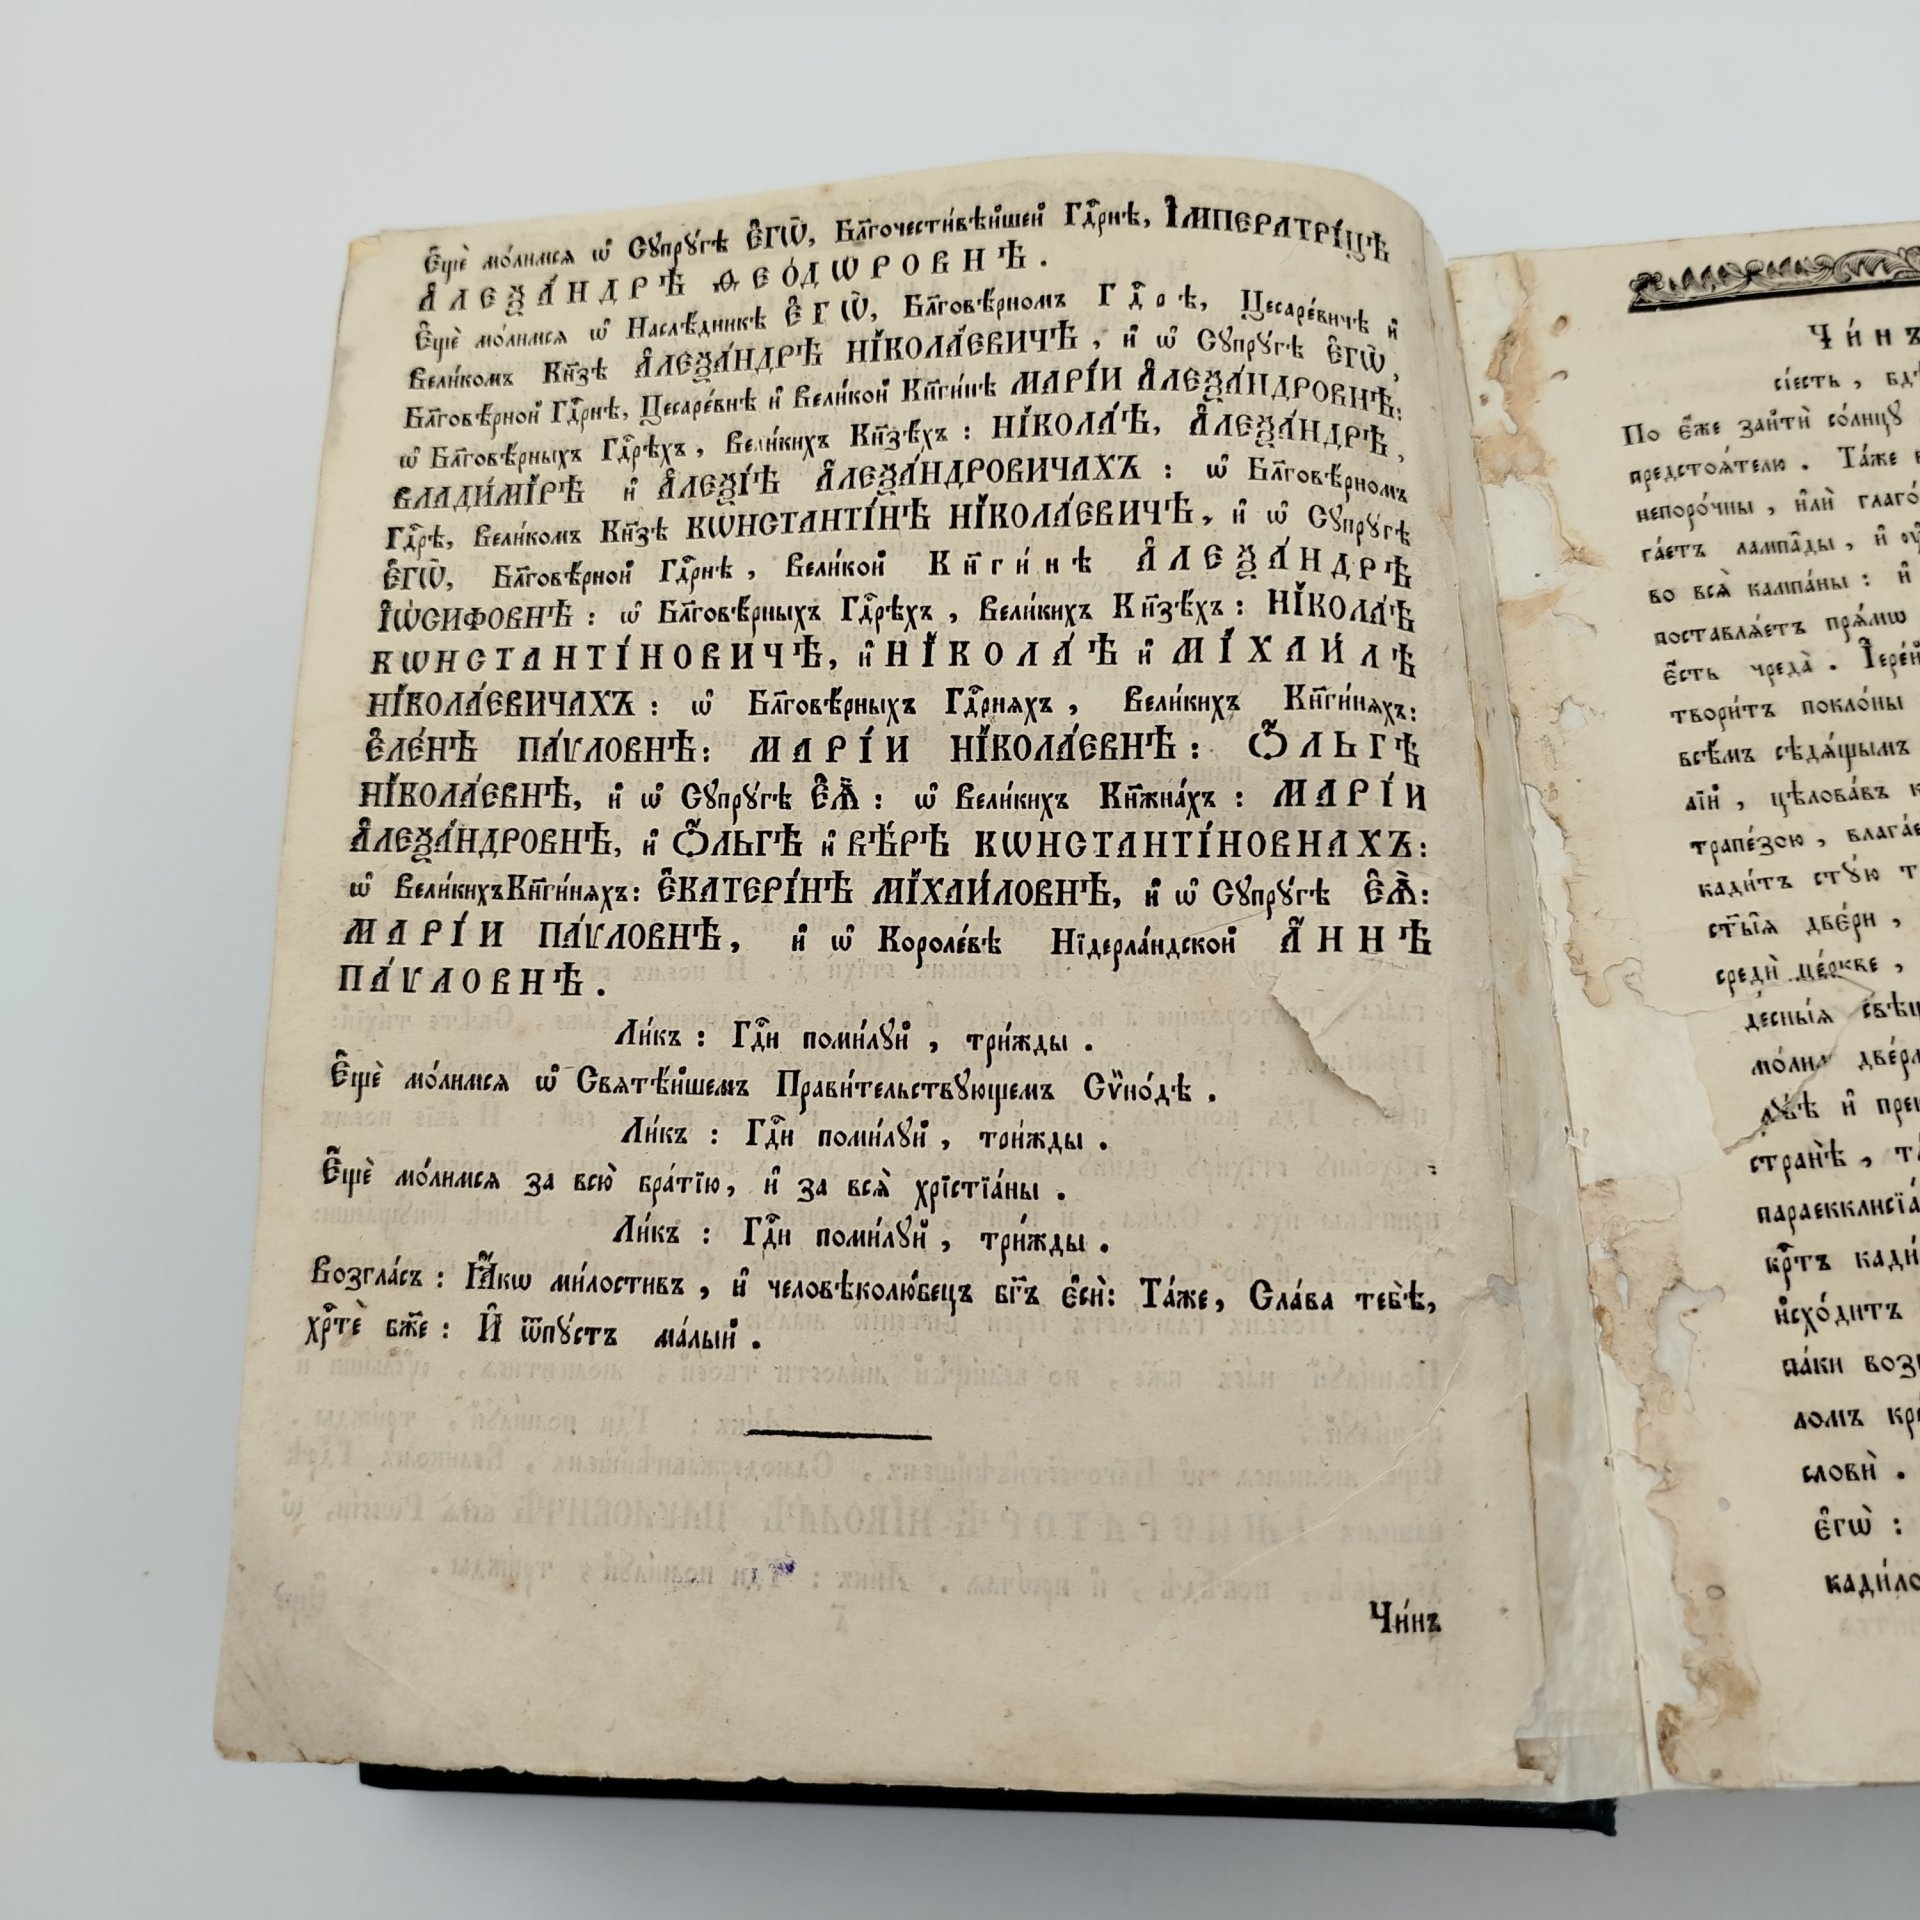 Є҆щѐ мо́лимсѧ ѡ҆ Сꙋпрꙋ́гѣ Є҆ГѠ̀, Бл҃гочести́вѣйшей Гдⷭ҇рнѣ, І҆МПЕРАТРІ́ЦѢ
А҆ЛЕѮА́НДРѢ Ѳ҆ЕО́ДѠРОВНѢ.
Є҆щѐ мо́лимсѧ ѡ҆ Наслѣ́дникѣ Є҆ГѠ̀, Бл҃говѣ́рномъ Гдⷭ҇рѣ, Цесаре́вичѣ и҆
Вели́комъ Кн҃зѣ А҆ЛЕѮА́НДРѢ НІКОЛА́ЕВИЧѢ, и҆ ѡ҆ Сꙋпрꙋ́гѣ Є҆ГѠ̀,
Бл҃говѣ́рной Гдⷭ҇рнѣ, Цесаре́внѣ и҆ Вели́кой Кн҃ги́нѣ МАРІ́И А҆ЛЕѮА́НДРОВНѢ:
ѡ҆ Бл҃говѣ́рныхъ Гдⷭ҇рѣхъ, Вели́кихъ Кн҃зѣ́хъ: НІКОЛА́Ѣ, А҆ЛЕѮА́НДРѢ,
ВЛАДИ́МІРѢ и҆ А҆ЛЕѮІ́Ѣ А҆ЛЕѮА́НДРОВИЧАХЪ: ѡ҆ Бл҃говѣ́рномъ
Гдⷭ҇рѣ, Вели́комъ Кн҃зѣ КѠНСТАНТІ́НѢ НІКОЛА́ЕВИЧѢ, и҆ ѡ҆ Сꙋпрꙋ́гѣ
Є҆ГѠ̀, Бл҃говѣ́рной Гдⷭ҇рнѣ, Вели́кой Кн҃ги́нѣ А҆ЛЕѮА́НДРѢ
І҆Ѡ́СИФОВНѢ: ѡ҆ Бл҃говѣ́рныхъ Гдⷭ҇рѣхъ, Вели́кихъ Кн҃зѣ́хъ: НІКОЛА́Ѣ
КѠНСТАНТІ́НОВИЧѢ, и҆ НІКОЛА́Ѣ и҆ МІХАИ́ЛѢ
НІКОЛА́ЕВИЧАХЪ: ѡ҆ Бл҃говѣ́рныхъ Гдⷭ҇рнѧхъ, Вели́кихъ Кн҃ги́нѧхъ:
Є҆ЛЕ́НѢ ПА́ѴЛОВНѢ: МАРІ́И НІКОЛА́ЕВНѢ: Ѻ҆́ЛЬГѢ
НІКОЛА́ЕВНѢ, и҆ ѡ҆ Сꙋпрꙋ́гѣ Є҆Ѧ̀: ѡ҆ Вели́кихъ Кн҃жна́хъ: МАРІ́И
А҆ЛЕѮА́НДРОВНѢ, и҆ Ѻ҆́ЛЬГѢ и҆ ВѢ́РѢ КѠНСТАНТІ́НОВНАХЪ:
ѡ҆ Вели́кихъ Кн҃ги́нѧхъ: Є҆КАТЕРІ́НѢ МІХАИ́ЛОВНѢ, и҆ ѡ҆ Сꙋпрꙋ́гѣ Є҆Ѧ̀:
МАРІ́И ПА́ѴЛОВНѢ, и҆ ѡ҆ Короле́вѣ Нїдерла́ндской А҆́ННѢ
ПА́ѴЛОВНѢ.
Ли́къ: Гдⷭ҇и поми́лꙋй, три́жды.
Є҆щѐ мо́лимсѧ ѡ҆ Свѧтѣ́йшемъ Прави́тельствꙋющемъ Сѷно́дѣ.
Ли́къ: Гдⷭ҇и поми́лꙋй, три́жды.
Є҆щѐ мо́лимсѧ за всю̀ бра́тїю, и҆ за всѧ̀ хрїстїа́ны.
Ли́къ: Гдⷭ҇и поми́лꙋй, три́жды.
Возгла́съ: Ꙗ҆́кѡ ми́лостивъ, и҆ человѣколю́бецъ бг҃ъ є҆сѝ: Та́же, Сла́ва тебѣ̀,
хрⷭ҇тѐ бж҃е: И҆ ѿпꙋ́стъ ма́лый.
Чи́нъ
Чи́нъ
сі́есть,
По є҆́же зайтѝ со́лнцꙋ
предстоѧ́телю. Та́же
непоро́чны, и҆лѝ
га́етъ лампа̑ды, и҆
во всѧ̀ кампа́ны: и҆
поставлѧ́етъ прѧ́мѡ
є҆́сть чреда̀.
твори́тъ покло́ны
всѣ̑мъ сѣдѧ́щымъ
а҆́їй, цѣлова́въ
трапе́зою,
кади́тъ ст҃ꙋ́ю
ст҃ы̑ѧ две́ри,
средѝ це́ркве,
десны́ѧ
и҆
странѣ̀,
параекклисїа́
крⷭ҇тъ
и҆схо́дитъ
па́ки
ломъ
словѝ.
є҆гѡ̀: